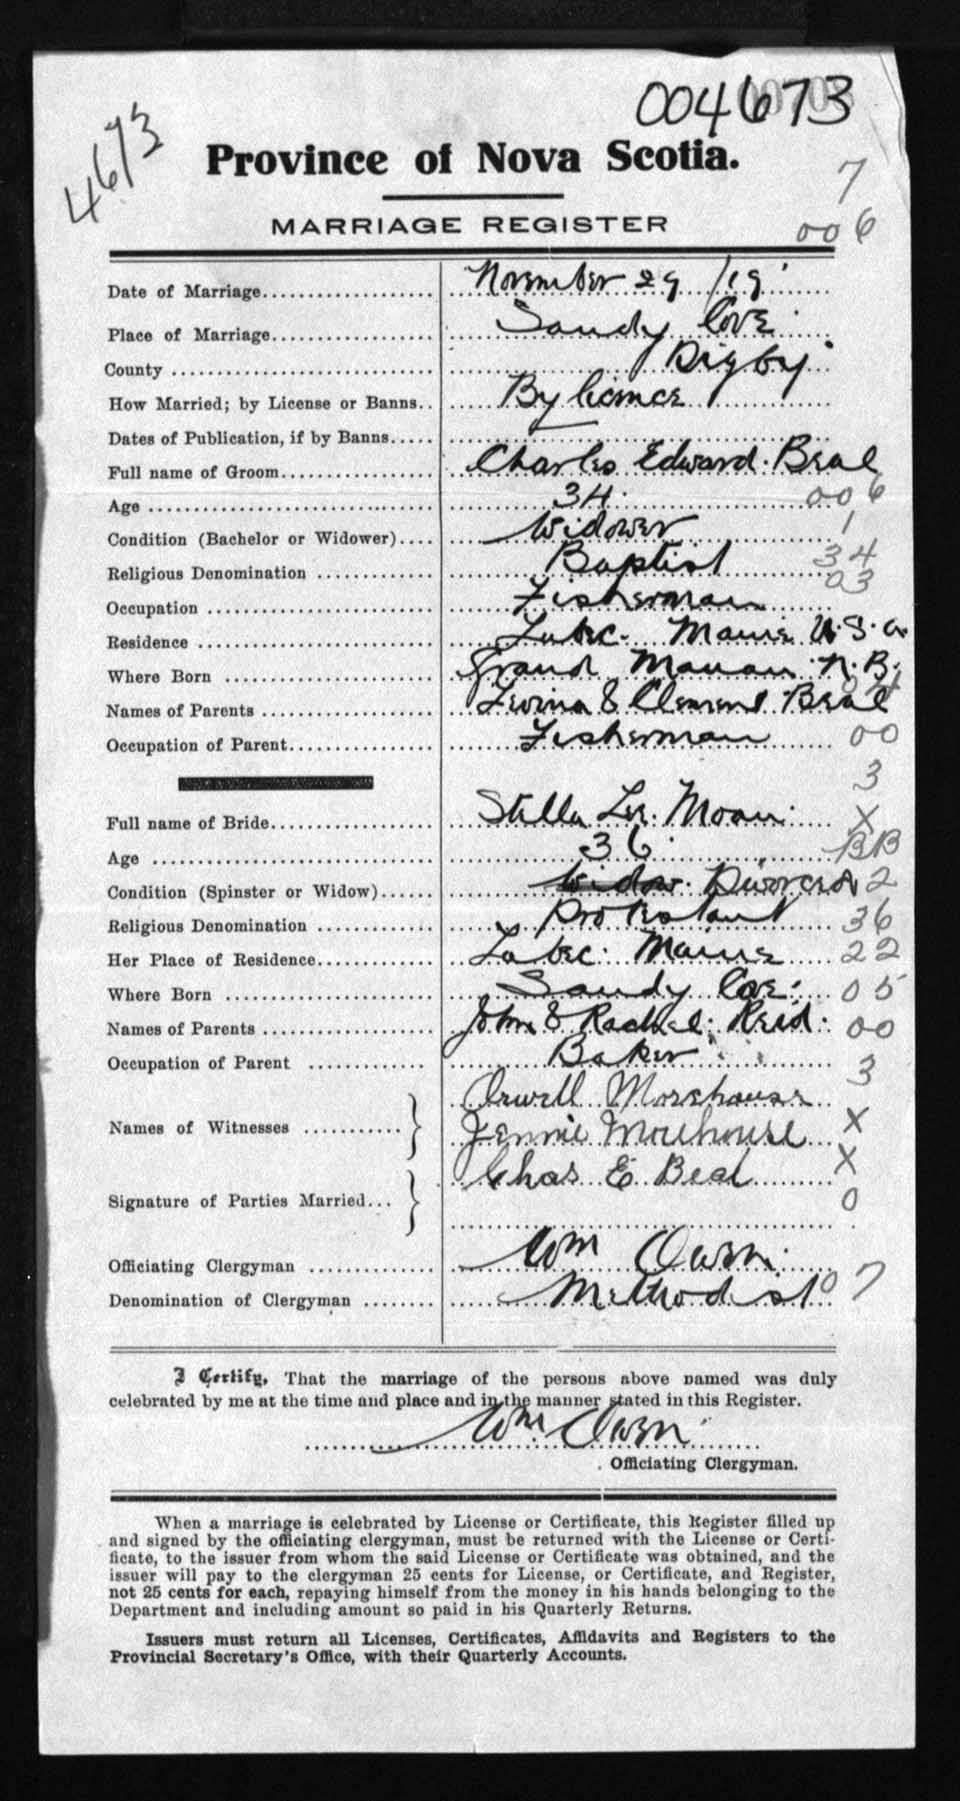 004673
4673
Province of Nova Scotia.
7
MARRIAGE REGISTER
006
Date of Marriage November 29 /19
Place of Marriage Sandy Cove
County Digby
How Married; by License or Banns By licence
Dates of Publication, if by Banns
Full name of Groom Charles Edward Beal
Age 34 006
Condition (Bachelor or Widower) Widower 1
Religious Denomination Baptist 34
Occupation Fisherman 03
Residence Lubec Maine U.S.a.
Where Born Grand Manan N.B.
Names of Parents & Clement Beal
Occupation of Parent Fisherman 00
3
Full name of Bride Stella Moan X
Age 36 BB
Condition (Spinster or Widow) Widow Divorced 2
Religious Denomination Protestant 36
Her Place of Residence Lubec Maine 22
Where Born Sandy Cove 05
Names of Parents John & Rachel Reid 00
Occupation of Parent Baker 3
Orwell Morehouse
Names of Witnesses Jennie Morehouse X
Chas E Beal X
Signature of Parties Married 0
Officiating Clergyman Wm Owen
Denomination of Clergyman Methodist 07
I Certify, That the marriage of the persons above named was duly
celebrated by me at the time and place and in the manner stated in this Register.
Wm Owen
Officiating Clergyman.
When a marriage is celebrated by License or Certificate, this Register filled up
and signed by the officiating clergyman, must be returned with the License or Certi-
ficate, to the issuer from whom the said License or Certificate was obtained, and the
issuer will pay to the clergyman 25 cents for License, or Certificate, and Register,
not 25 cents for each, repaying himself from the money in his hands belonging to the
Department and including amount so paid in his Quarterly Returns.
Issuers must return all Licenses, Certificates, Affidavits and Registers to the
Provincial Secretary's Office, with their Quarterly Accounts.